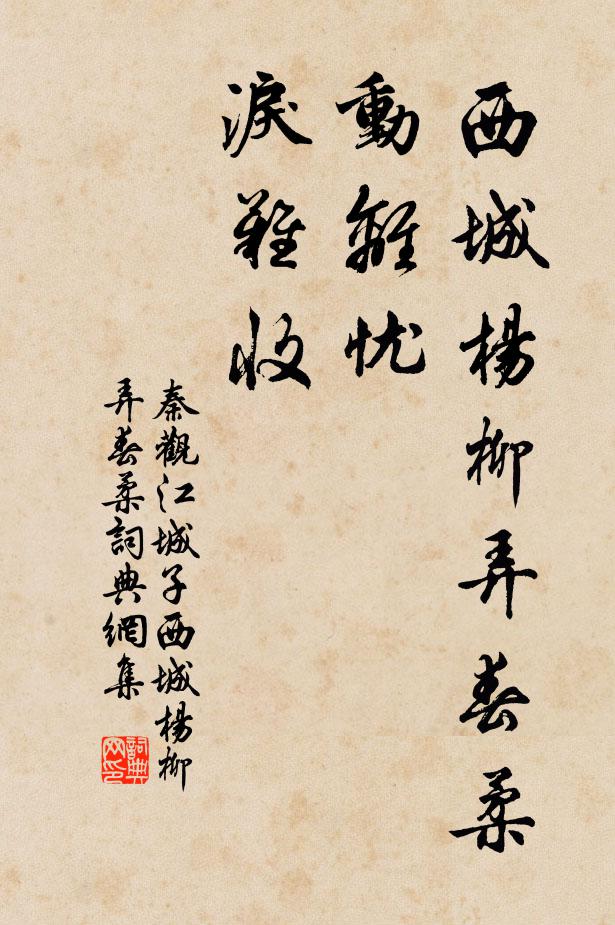 西城楊柳弄春柔
動離忧
淚難收
秦觀江城子西城楊柳
弄春柔詞典網集
詞典
网印